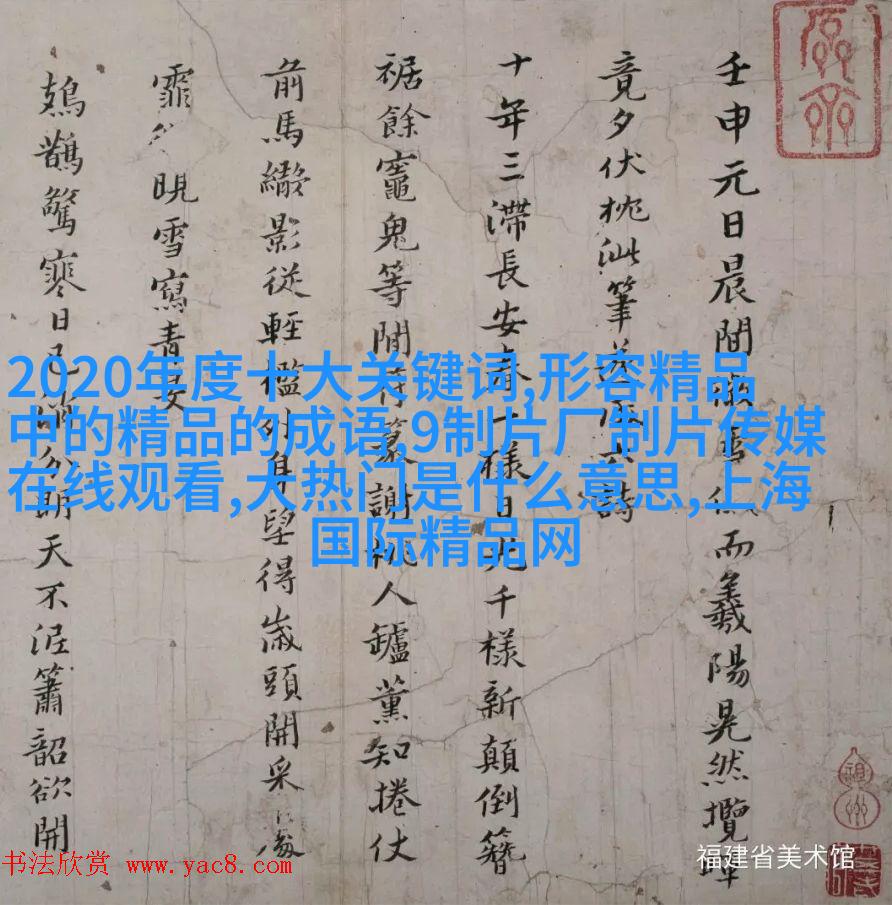 壬申元日晨間微雪俄而羲陽晃然攬
竟夕伏枕泚筆為
十年三滯長安春十樣日光千樣新顛倒簪
裾餘寵鬼等閒符篆謝桃人鑪薰知捲仗
前馬繼影從輕檻外身望得歲頭開采
霏 晛雪寫青女
鵁鵲驚寒日已 分明天不泥簫韶欲開
2020年度十大关键词,形容精品
中的精品的成语,9制片厂制片传媒
在线观看,大热门是什么意思,上海
国际精品网
书法欣赏 www.yac8.com
福建省美术馆